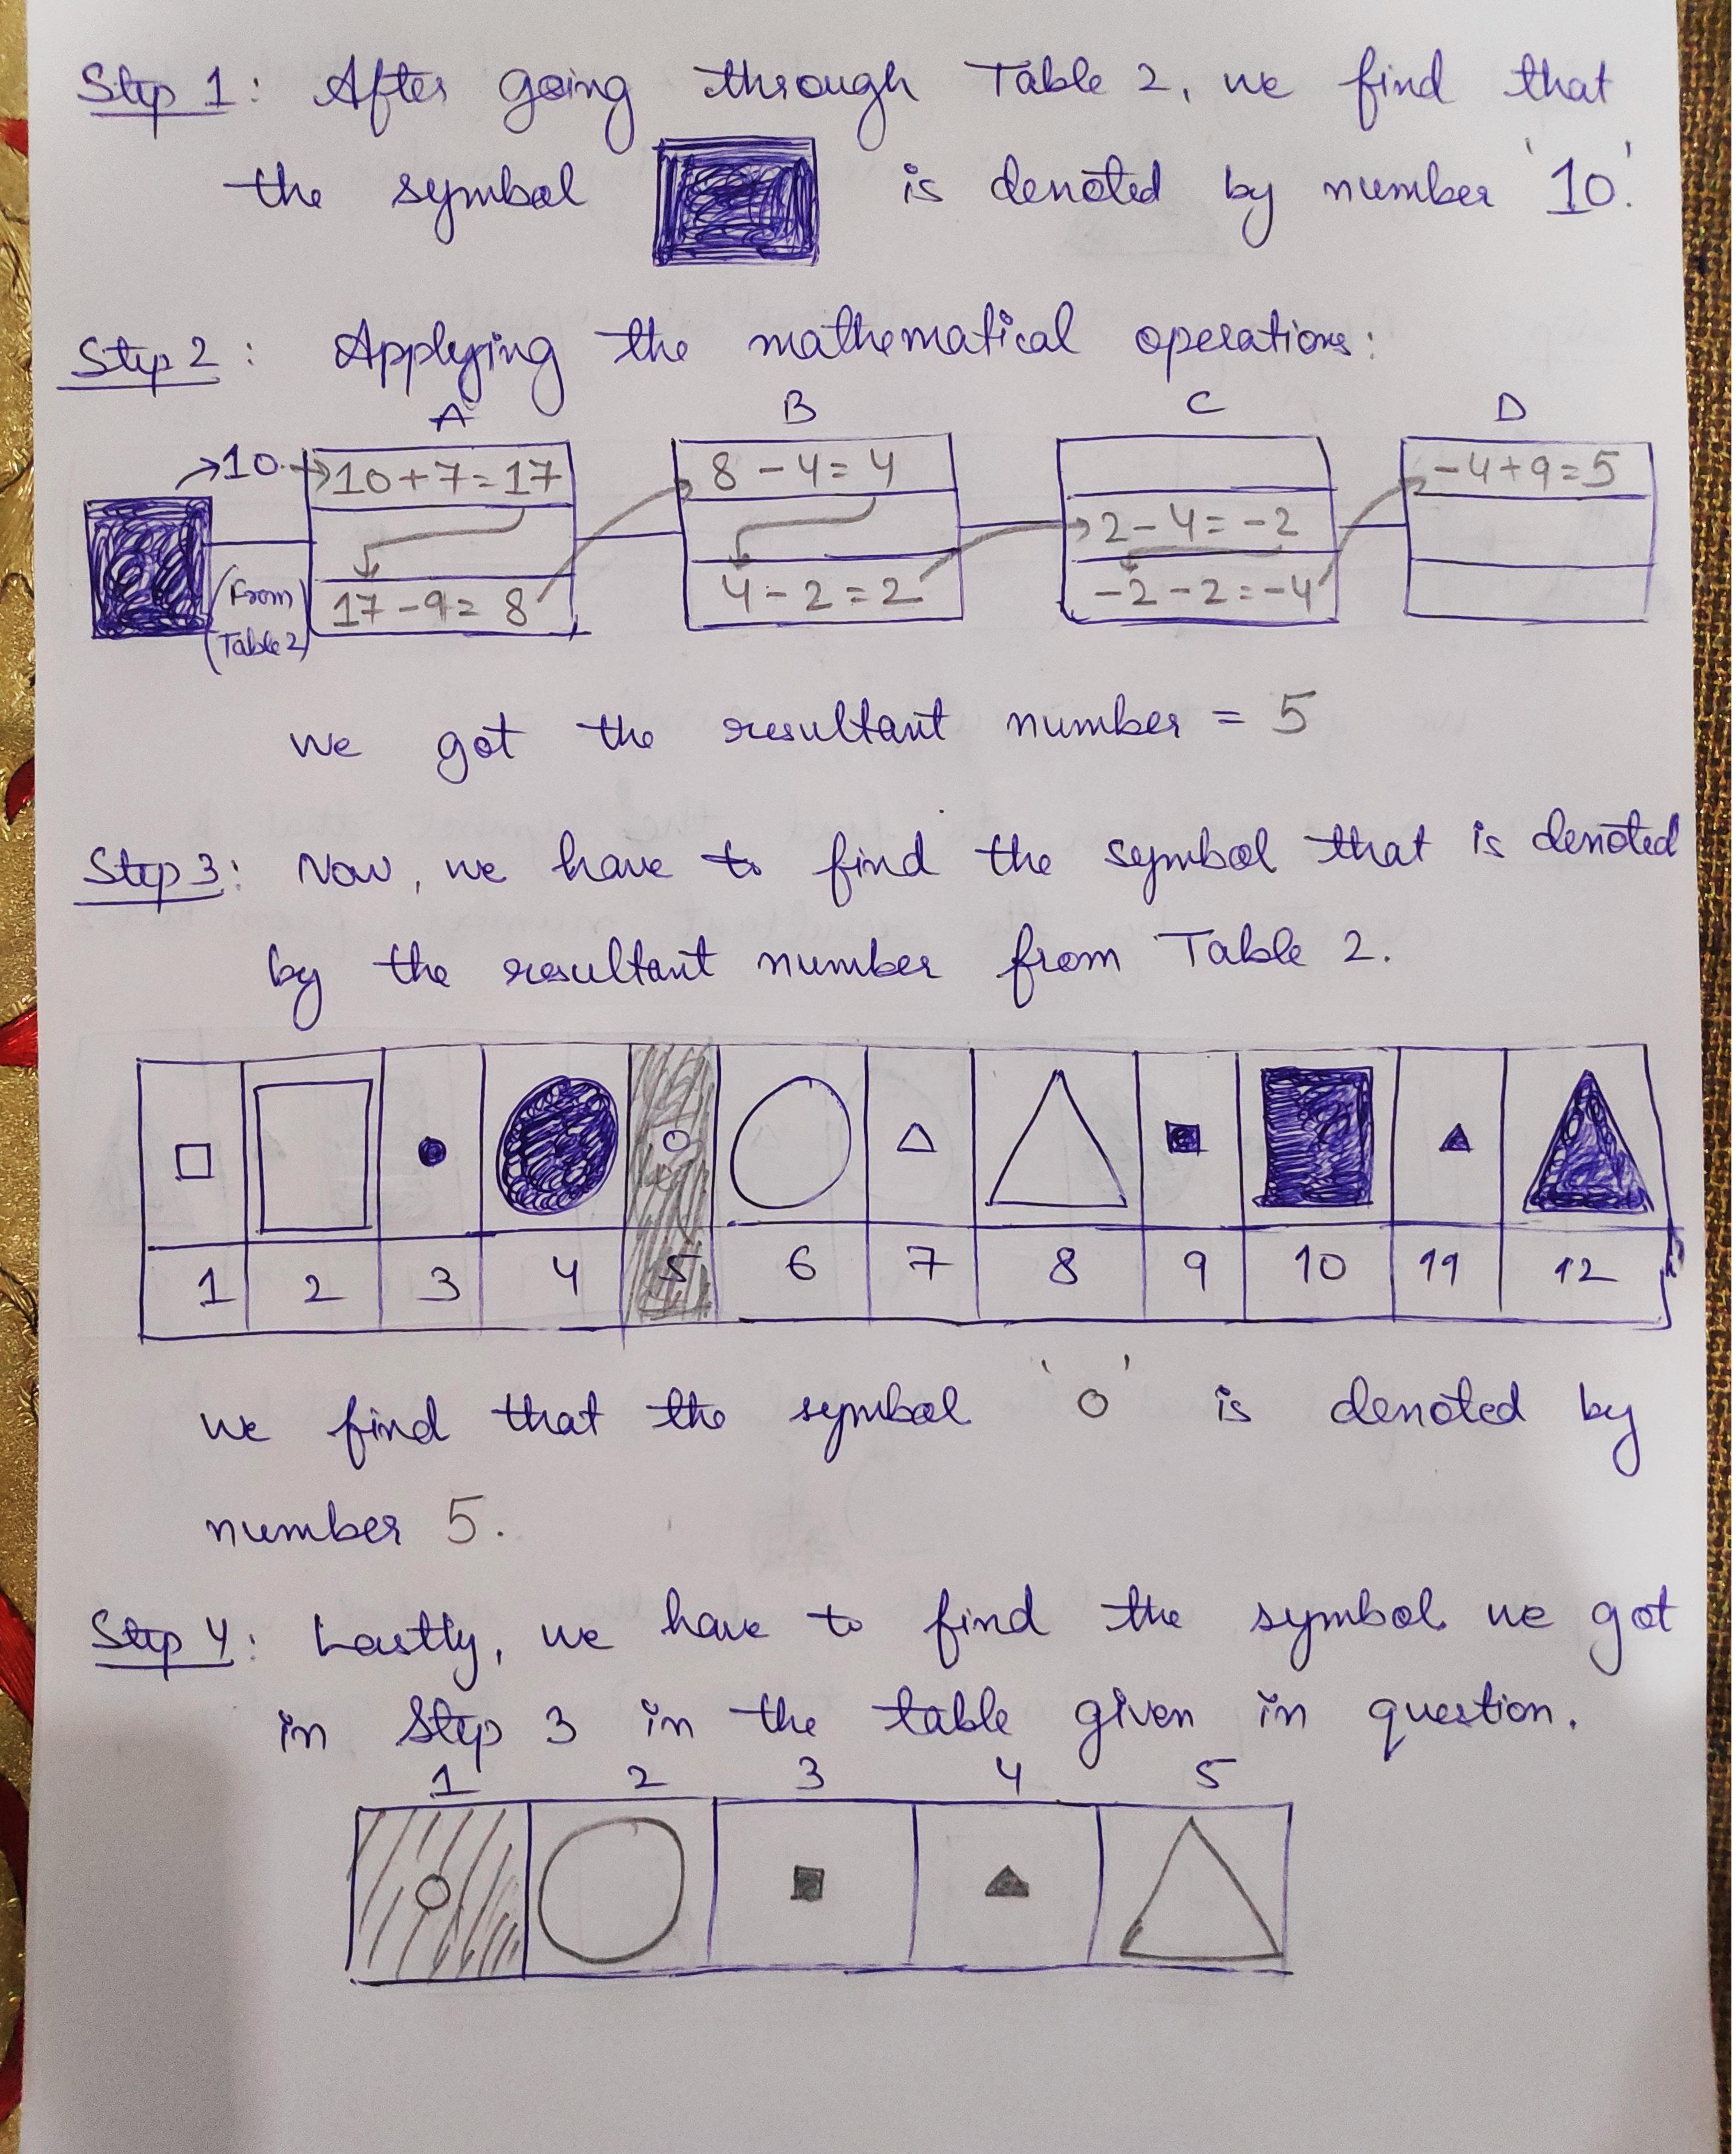 Step 1: After going through Table 2, we find that
the symbol is denoted by number '10'.
Step 2: Applying the mathematical operations:
A B C D
10 10+7=17 8-4=4 -4+9=5
2-4=-2
(From Table 2) 17-9=8 4-2=2 -2-2=-4
we got the resultant number = 5
Step 3: Now, we have to find the symbol that is denoted
by the resultant number from Table 2.
1 2 3 4 5 6 7 8 9 10 11 12
we find that the symbol 'o' is denoted by
number 5.
Step 4: Lastly, we have to find the symbol we got
in Step 3 in the table given in question.
1 2 3 4 5